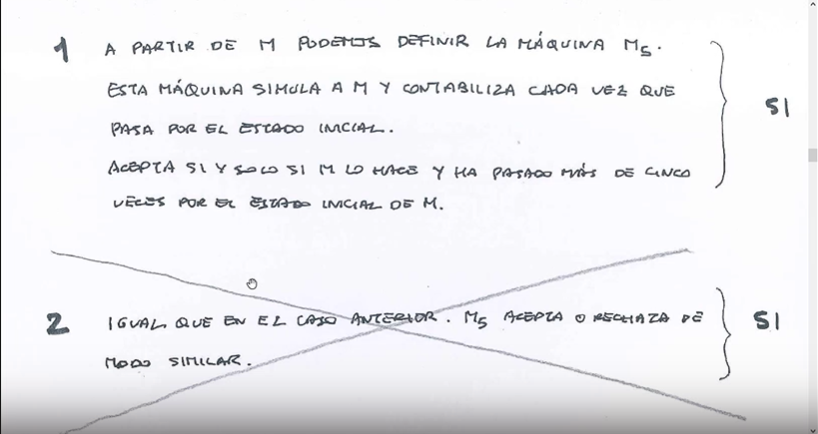 1 A PARTIR DE M PODEMOS DEFINIR LA MÁQUINA M5.
ESTA MÁQUINA SIMULA A M Y CONTABILIZA CADA VEZ QUE
PASA POR EL ESTADO INICIAL.
ACEPTA SI Y SOLO SI M LO HACE Y HA PASADO MÁS DE CINCO
VECES POR EL ESTADO INICIAL DE M.
SI
2 IGUAL QUE EN EL CASO ANTERIOR. M5 ACEPTA O RECHAZA DE
MODO SIMILAR.
SI